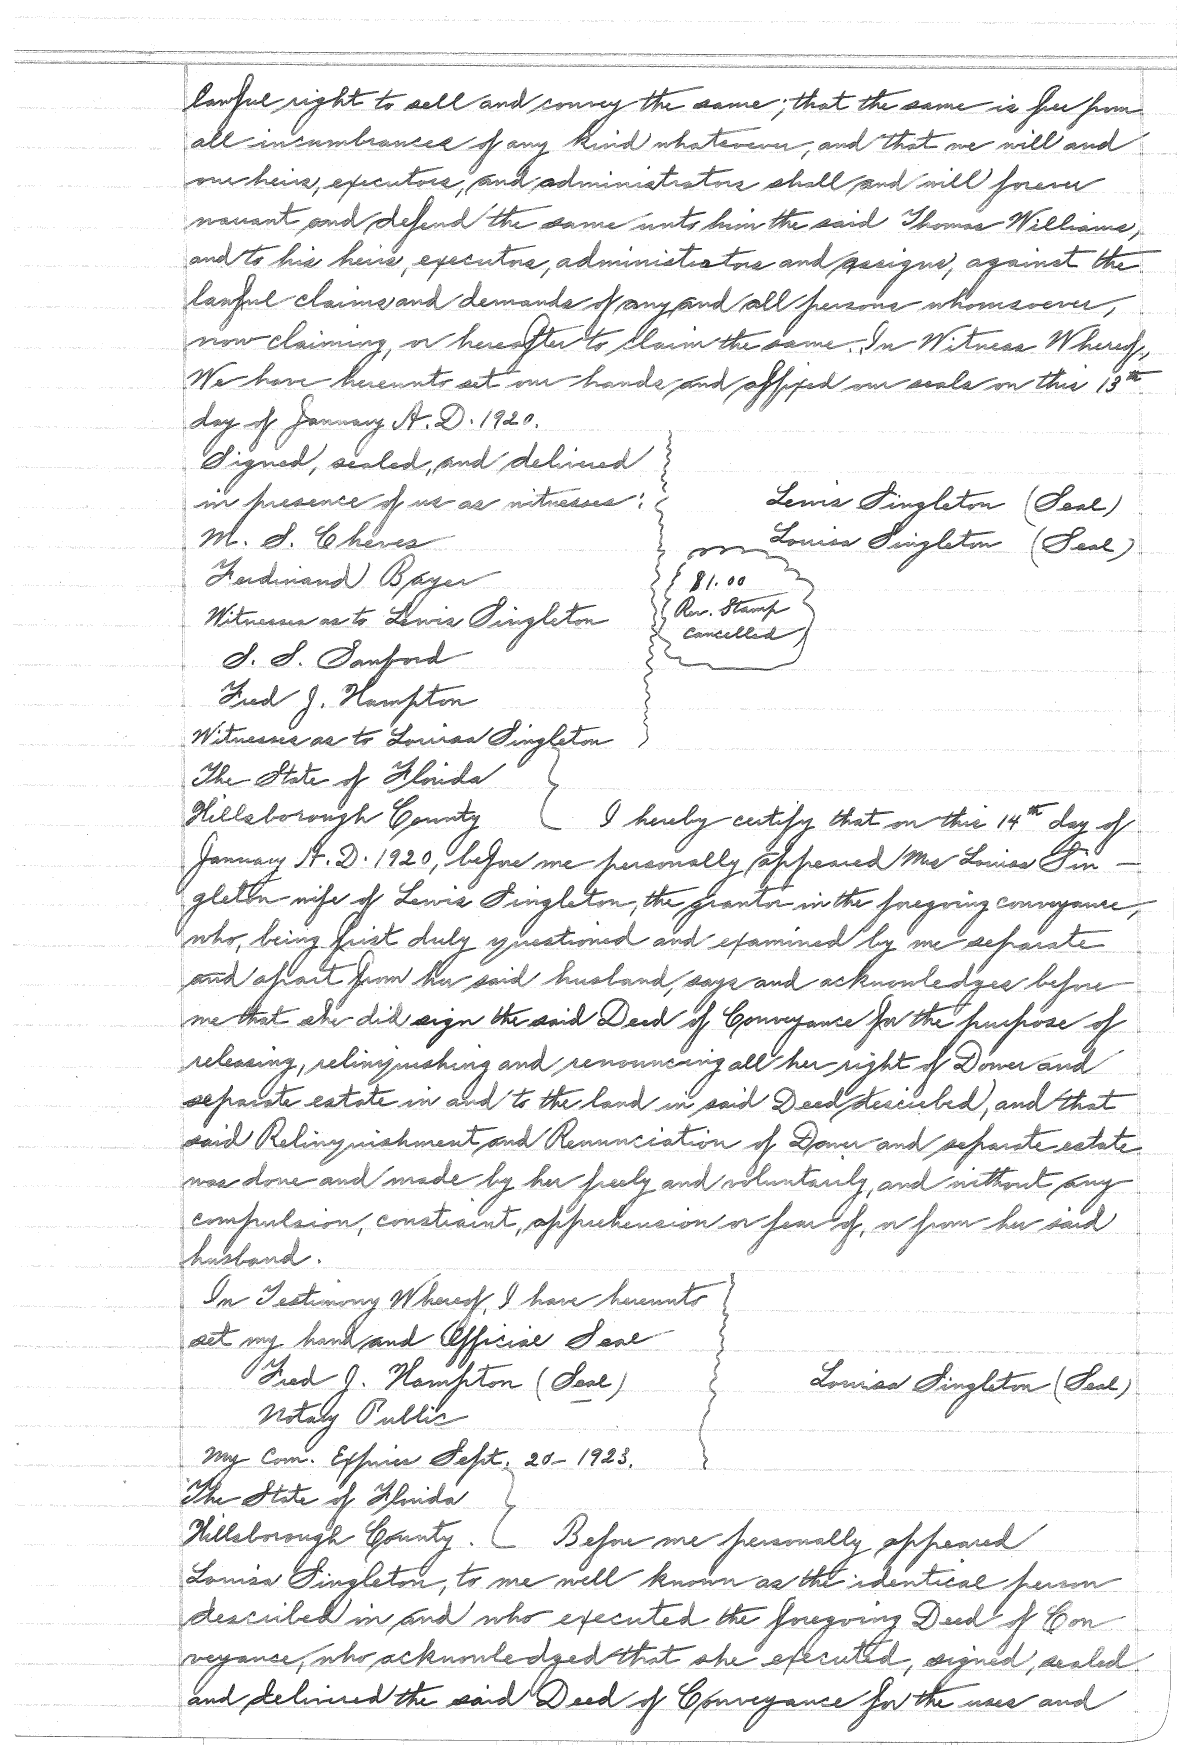 lawful right to sell and convey the same; that the same is free from
all incumbrances of any kind whatsoever, and that we will and
our heirs, executors, and administrators shall and will forever
warrant and defend the same unto him the said Thomas Williams,
and to his heirs, executors, administrators and assigns, against the
lawful claims and demands of any and all persons whomsoever,
now claiming, or hereafter to claim the same. In Witness Whereof,
We have hereunto set our hands and affixed our seals on this 13th
day of January A.D. 1920.
Signed, sealed, and delivered
in presence of us as witnesses:
Lewis Singleton (Seal)
M. S. Cheves
Louisa Singleton (Seal)
Ferdinand Bayer
$1.00
Rev. Stamp
Cancelled
Witnesses as to Lewis Singleton
S. S. Sanford
Fred J. Hampton
Witnesses as to Louisa Singleton
The State of Florida
Hillsborough County I hereby certify that on this 14th day of
January A.D. 1920, before me personally appeared Mrs Louisa Sin-
gleton wife of Lewis Singleton, the grantor in the foregoing conveyance,
who, being first duly questioned and examined by me separate
and apart from her said husband, says and acknowledges before
me that she did sign the said Deed of Conveyance for the purpose of
releasing, relinquishing and renouncing all her right of Dower and
separate estate in and to the land in said Deed described, and that
said Relinquishment and Renunciation of Dower and separate estate
was done and made by her freely and voluntarily, and without any
compulsion, constraint, apprehension or fear of, or from her said
husband.
In Testimony Whereof, I have hereunto
set my hand and Official Seal
Fred J. Hampton (Seal) Louisa Singleton (Seal)
Notary Public
My Com. Expires Sept. 20-1923.
The State of Florida
Hillsborough County. Before me personally appeared
Louisa Singleton, to me well known as the identical person
described in and who executed the foregoing Deed of Con
veyance, who acknowledged that she executed, signed, sealed
and delivered the said Deed of Conveyance for the uses and